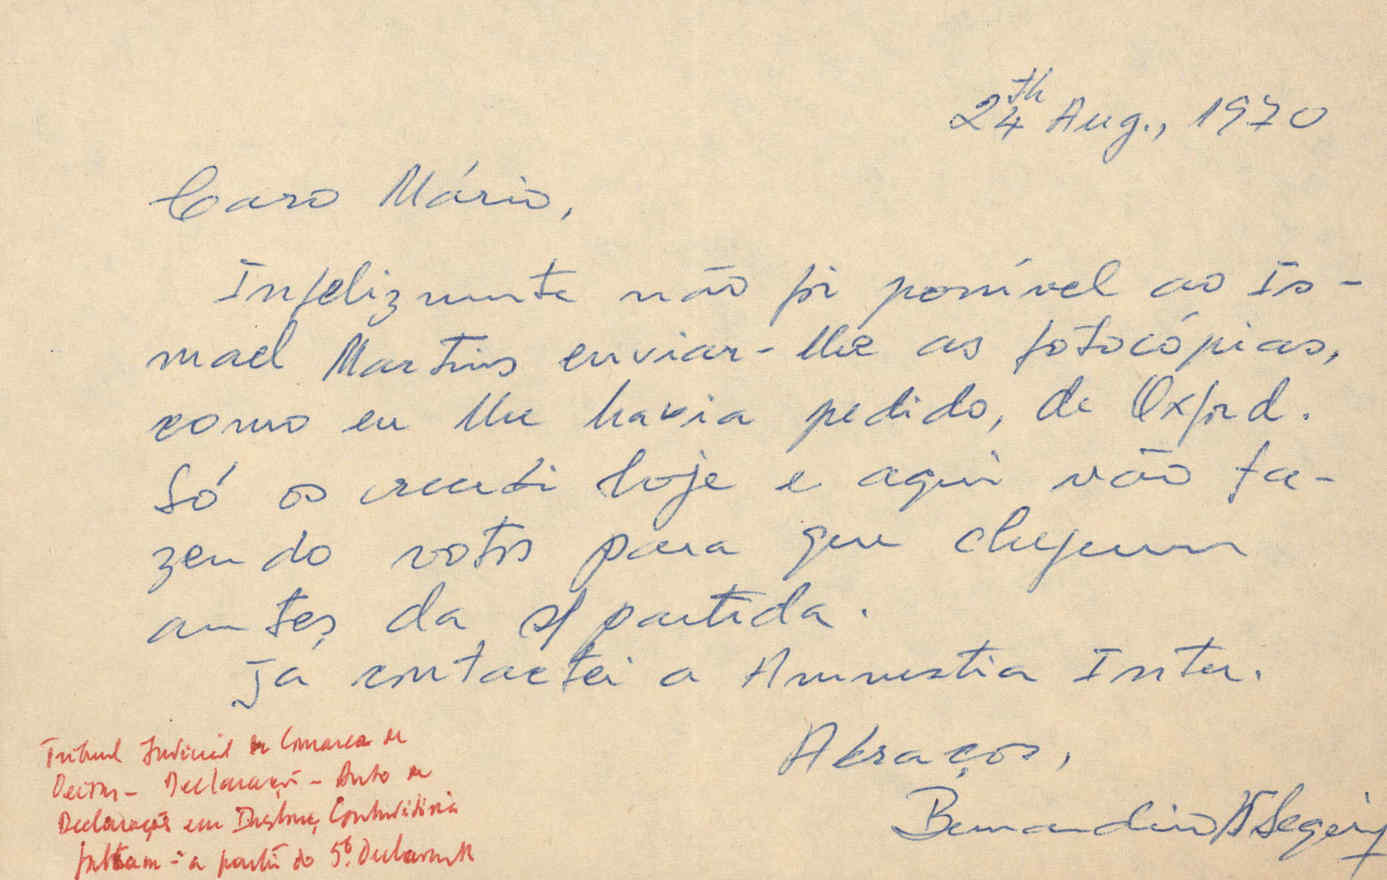 24th Aug., 1970
Caro Mário,
Infelizmente não foi possível ao Is-
mael Martins enviar-lhe as fotocópias,
como eu lhe havia pedido, de Oxford.
Só os recebi hoje e aqui vão fa-
zendo votos para que cheguem
antes da s/ partida.
Já contactei a Amnestia Inter.
Abraços,
Bernardino
Tribunal Judicial da Comarca de
Oeiras - Declaração - Auto de
Declaração em Instrução Contraditória
faltam - a partir do 5º Declarante